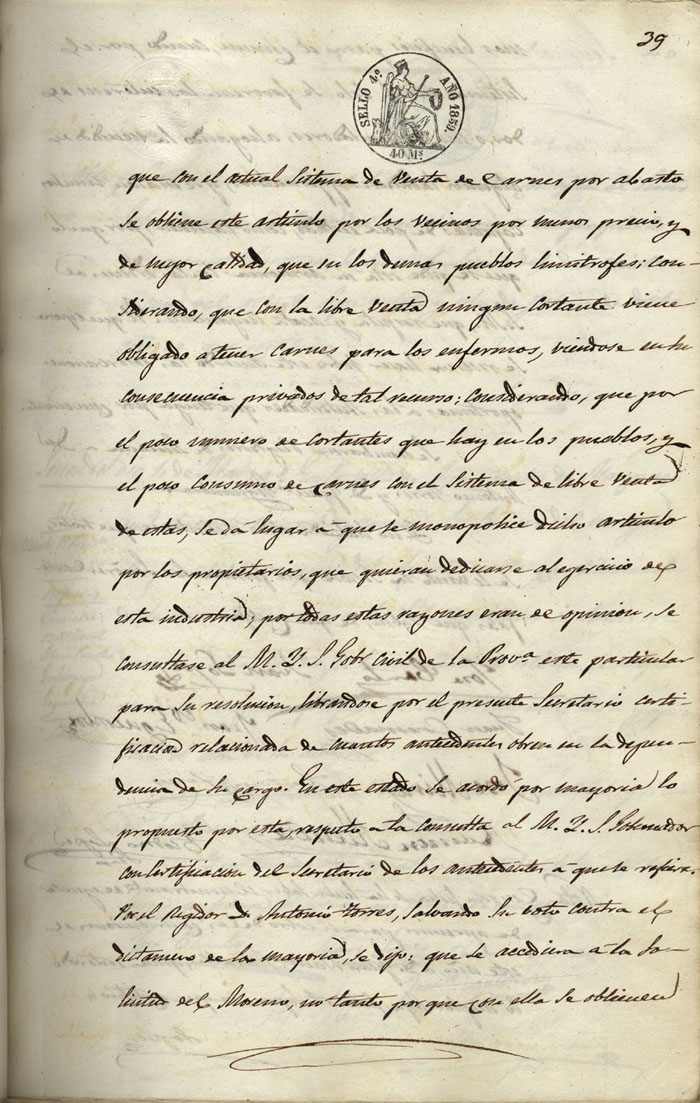 39
SELLO 4º AÑO 1859.
40 Ms
que con el actual Sistema de Venta de Carnes por abasto
se obtiene este artículo por los vecinos por menos precio, y
de mejor calidad, que en los demas pueblos limitrofes; con-
siderando, que con la libre Venta ningun Cortante viene
obligado a tener Carnes para los enfermos, viendose en su
consecuencia privados de tal recurso; considerando, que por
el poco numero de Cortantes que hay en los pueblos, y
el poco Consumo de Carnes con el Sistema de libre Venta
de estas, se dá lugar á que se monopolice dicho articulo
por los propietarios, que quieran dedicarse al egercicio de
esta industria; por todas estas razones eran de opinion, se
consultase al M. Y. S. Gobr Civil de la Provª este particular
para su resolucion, librandose por el presente Secretario certi-
ficacion relacionada de cuantos antecedentes obren en la depen-
dencia de su cargo. En este estado se acordó por mayoria lo
propuesto por esta, respecto a la consulta al M. Y. S. Gobernador
con Certificacion del Secretario de los antecedentes á que se refiere.
Por el Regidor D. Antonio Torres, salvando su voto contra el
dictamen de la mayoria, se dijo: que se accediera a la so-
licitud del Moreno, no tanto por que con ella se obtienen